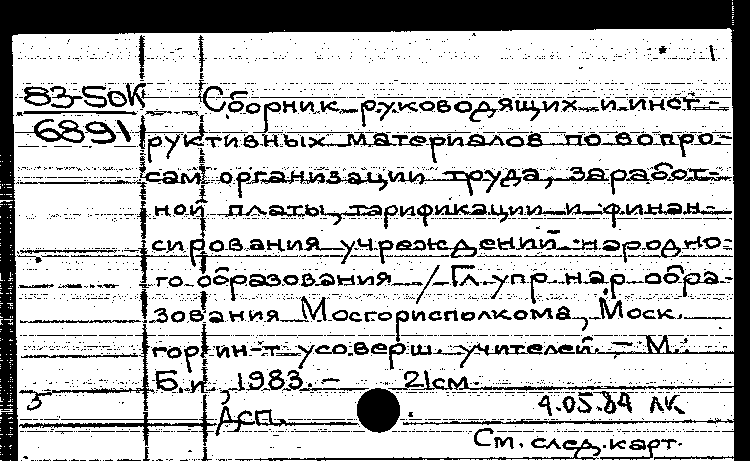 83-50К
6891
Сборник руководящих и инст-
руктивных материалов по вопро-
сам организации труда, заработ-
ной платы, тарификации и финан-
сирования учреждений народно-
го образования / Гл. упр. нар. обра-
зования Мосгорисполкома, Моск.
гор. ин-т усоверш. учителей. - М.:
Б.и., 1983. - 21см.
5
ДСП.
4.05.84 ЛК
См. след. карт.